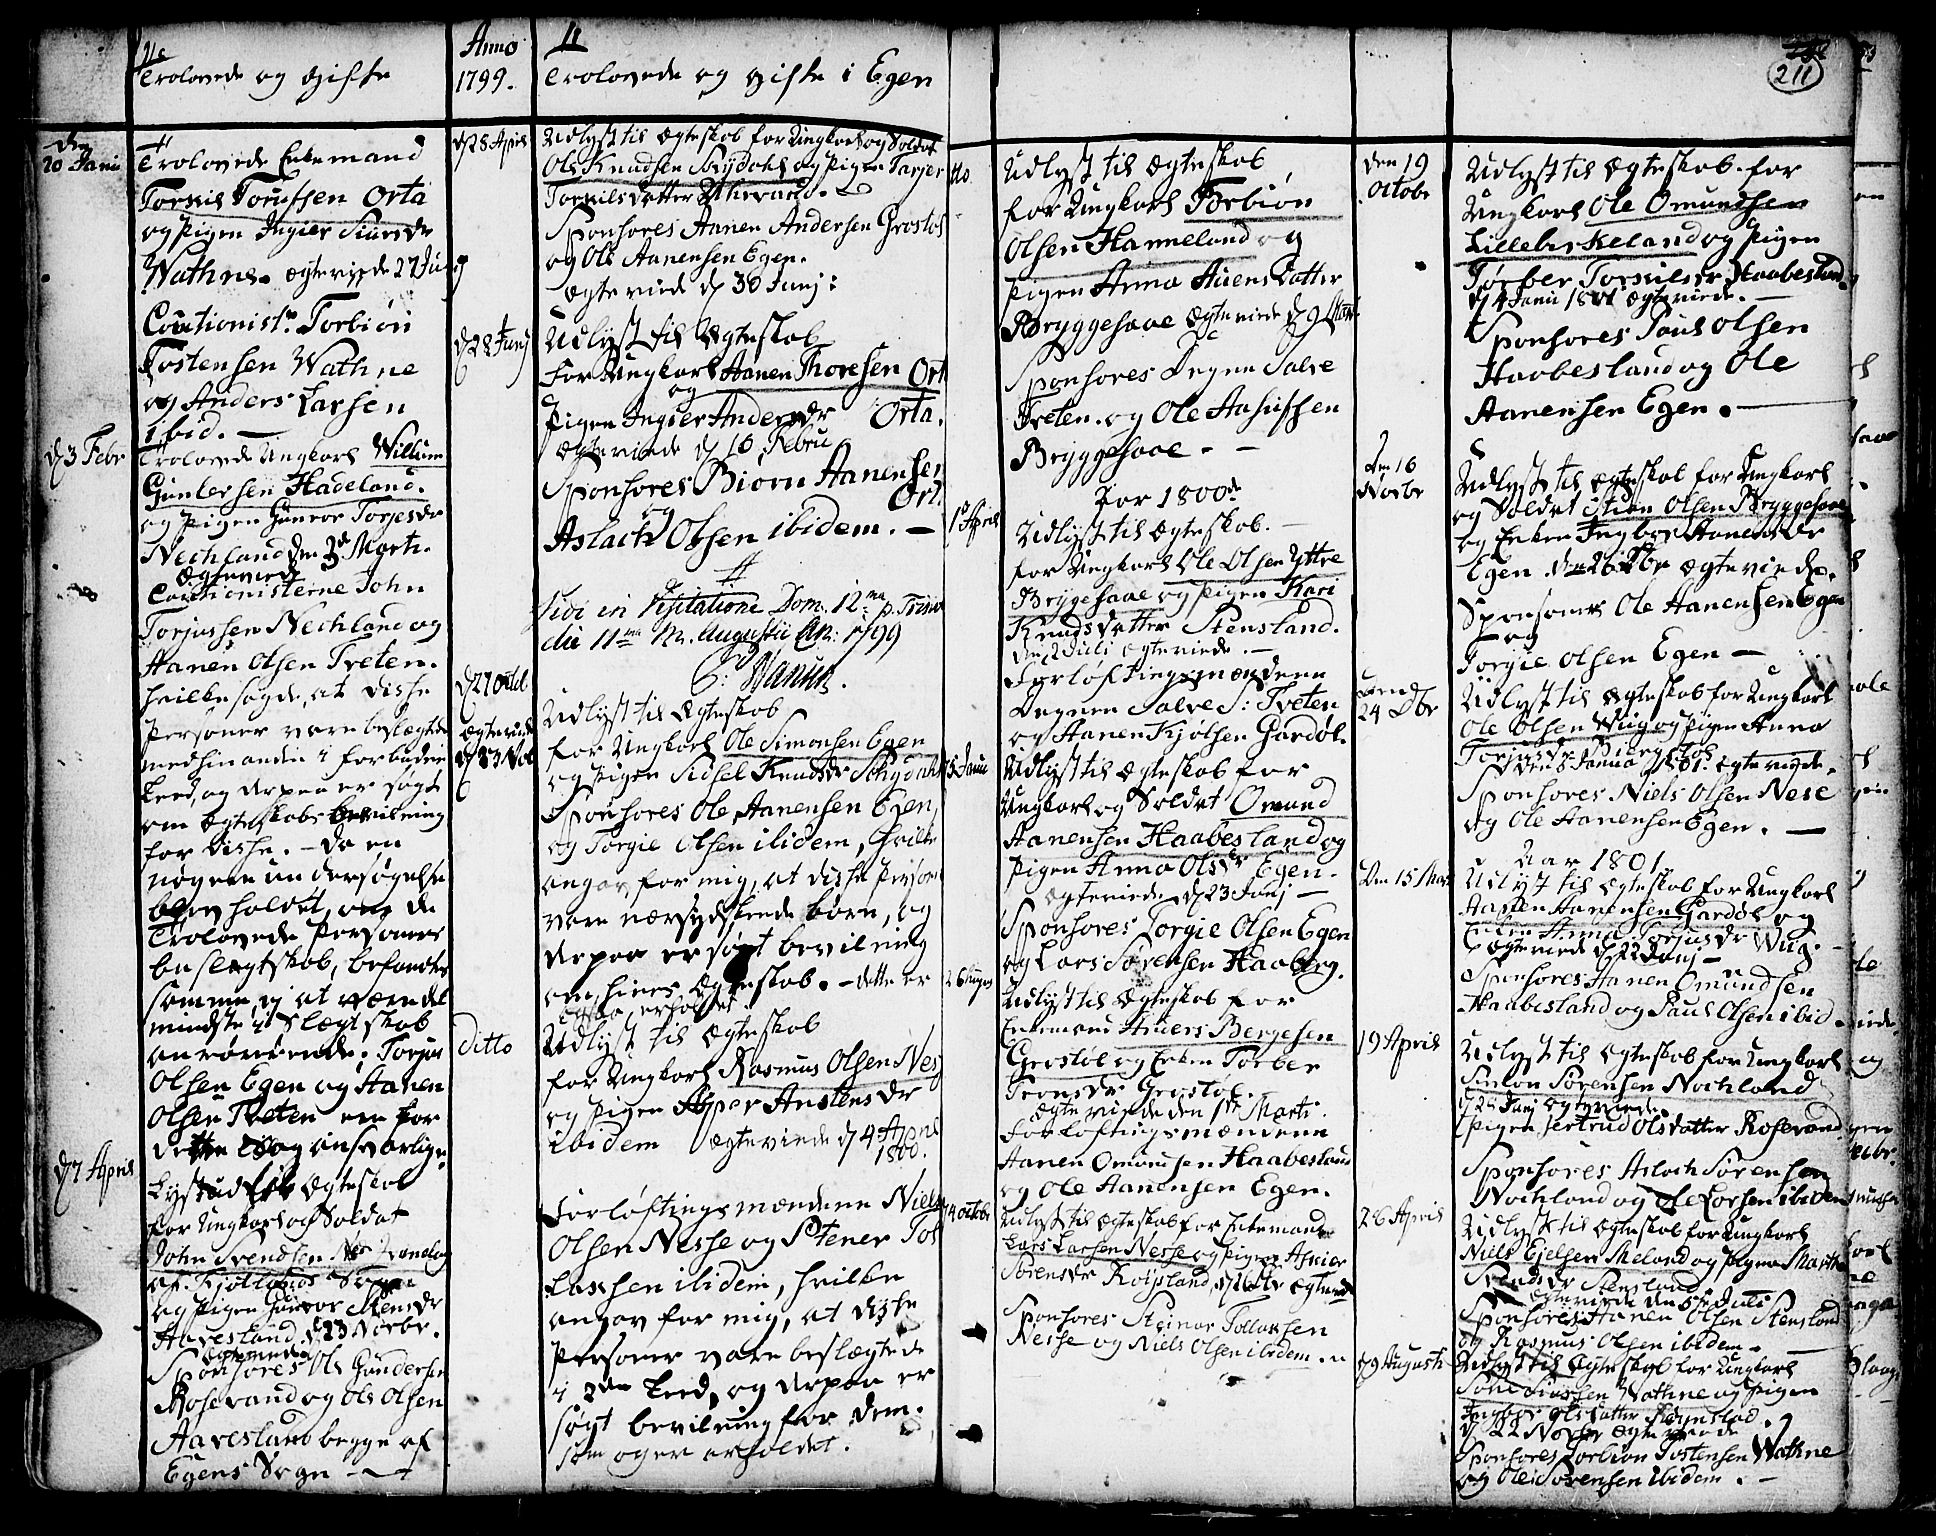 Trolovede og Gifte
Anno
1799.
Trolovede og Gifte i Egen
211
Den
20 Janu
Trolovede Enkemand
Torkil Torussen Orta
og Pigen Ingier Siursdr
Wathne. Ægteviede 27 Junj
Cautionistr Torbiön
Tostensen Wathne
og Anders Larsen
ibid. —
d 3 Febr
Trolovede Ungkarl Willum
Guntersen Hadeland.
og Pigen Gunvor Torjesdr
Nechland den 3d Marti.
Ægteviede
Cautionisterne John
Torjussen Nechland og
Aanen Olsen Tveten.
hvilke sagde, at disse
Personer vare beslægtede
med hinanden i forbuden
Leed, og derpaa er søgt
om Ægteskabs bevilning
for disse. — Da en
nøyere undersøgelse
blev holdet, om de
Trolovede Personers
beslægtskab, befandtes
samme, ej at være det
mindste i Slægtskab
anrørende; Torjus
Olsen Egen og Aanen
Olsen Tveten ere for
dette Sag ansvarlige.
d 7 April
Lyst udi Ægteskab
for Ungkarl og Soldat
John Svendsen
af Fjotlands Sogn
og Pigen Gunvor Stensdr
Aavesland d 23 Novbr.
Ægteviede
Sponsores Ole Gundersen
Rosevand og Ole Olsen
Aavesland begge af
Egens Sogn —
d 28 April
Udlyst til Ægteskab for Ungkarl og Soldat
Ole Knudsen Schÿdahl og Pigen Tarjer
Torkilsdatter Atherand.
Sponsores Aanen Andersen Grostøl
og Ole Aanensen Egen.
Ægteviede d 30 Junj:
d 28 Junj
Udlyst til Ægteskab
for Ungkarl Aanen Thoresen Ort
og
Pigen Ingier Andersdr Orta.
Ægteviede d 16 Febru
Sponsores Biörn Aanensen
Ort.
og
Aslach Olsen ibidem. —
Vidi in Visitatione Dom. 12ma p. Trinit
die 11ma M. Augustii An: 1799
Hansen.
d 27 Octbr
Ægteviede
d 23 Nov
Udlyst til Ægteskab
for Ungkarl Ole Simonsen Egen
og Pigen Sidsel Knudsdr Schydahl
Sponsores Ole Aanensen Egen,
og Torgie Olsen ibidem, hvilke
angav for mig, at disse Personer
vare nærsydskende børn, og
derpaa er søgt bevilning
om hines Ægteskab. — dette er
ogsaa erholdet
Ditto
Udlyst til Ægteskab
for Ungkarl Rasmus Olsen Nes
og Pigen Asper Anstensdr
ibidem Ægteviede d 4 April
1800.
Forløftingsmændene Niels
Olsen Nesse og Stener Tol
lassen ibidem, hvilke
angav for mig, at disse
Personer vare beslægtede
i 2den Leed, og derpaa er
søgt bevilning for dem.
som og er erholdet.
Udlyst til Ægteskab
for Ungkarl Torbiön
Olsen Hanneland og
Pigen Anna AuensDatter
Bryggesaae Ægteviede d 9 Octbr
Sponsores Degnen Salve
Tveten. og Ole Aasulssen
Bryggesaae. —
Aar 1800d
1d April
Udlyst til Ægteskab. —
for Ungkarl Ole Olsen Yttre
Brygesaae og Pigen Kari
Knudsdatter Stensland.
den 2 Juli Ægteviede. —
Forløftingsmændene
Degnen Salve S: Tveten
og Aanen Kjølsen Gardøl.
Udlyst til Ægteskab for
Ungkarl og Soldat Omund
Aanensen Haabesland og
Pigen Anna Olsdr Egen.
Ægteviede d 23 Junj —
Sponsores Torgie Olsen Egen
og Lars Sørensen Haaberg.
26 Augus
Udlyst til Ægteskab for
Enkemand Anders Bergesen
Grostøl og Enken Torber
Tronsdr Grostøl.
Ægteviede den 1ste Marti.
Forløftingsmændene
Aanen Omundsen Haabesland
og Ole Aanensen Egen.
14 Octobr
Udlyst til Ægteskab for Enkemand
Lars Larsen Nesse og Pigen Asier
Sørensdr Røijsland, Ægteviede
Sponsores Steinar Tollassen
Nesse og Niels Olsen ibidem.
Den 19
Octobr
Udlyst til Ægteskab for
Ungkarl Ole Omundsen
Lillebirkeland og Pigen
Tørber Torkilsdr Haabesland
d 4 Janu 1801 Ægteviede. —
Sponsores Poul Olsen
Haabesland og Ole
Aanensen Egen. —
Den 16
Novbr
Udlyst til Ægteskab for Ungkarl
og Soldat Stian Olsen Bryggesaae
og Enken Ingbor Aanensdr
Egen. den 26 Dbr Ægteviede.
Sponsores Ole Aanensen Egen
og
Torgie Olsen Egen —
Den
24 Dbr
Udlyst til Ægteskab for Ungkarl
Ole Olsen Wiig og Pigen Anna
Torjusdr Biergstøl
den 8 Janua 1801. Ægteviede.
Sponsores Niels Olsen Nese
og Ole Aanensen Egen. —
Aar 1801
Den 15 Mar
Udlyst til Ægteskab for Ungkarl
Aanen Aanensen Gardøl og
Enken Anna Torjusdr Wiig.
Ægteviede d 22 Junj —
Sponsores Aanen Omundsen
Haabesland og Paul Olsen ibid
19 April
Udlyst til Ægteskab for Ungkarl
Simon Sørensen Nochland
d 24 Junj Ægteviede.
Pigen Jertrud Olsdatter Rosevand
Sponsores Aslach Sørensen
Nochland og Ole Larsen ibidem
26 April
Udlyst til Ægteskab for Ungkarl
Niels Ejelsen Meland og Pigen Marthe
Svendsdr Stensland
Ægteviede den 5te Juli
Sponsores Aanen Olsen Stensland
og Rasmus Olsen ibidem. —
d 9 Augusti
Udlyst til Ægteskab for Ungkarl
Wathne og Pigen
Ingbor Olsdatter
d 22 Novbr Ægteviede
Sponsores Torbiön Tostensen Wathne
og Ole Sørensen ibidem. —